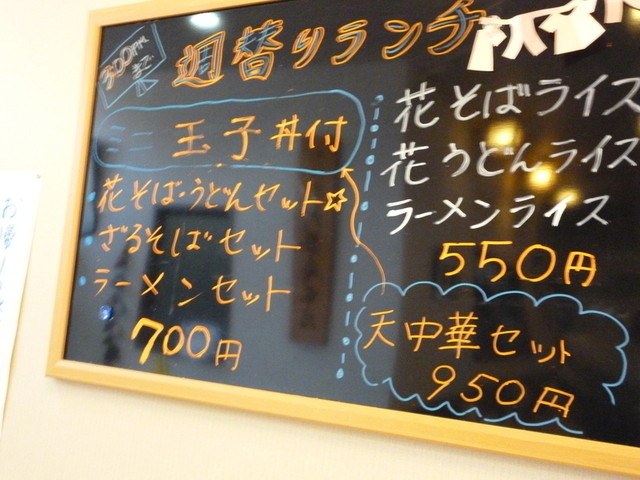 3:00PMまで
週替りランチ
ミニ玉子丼付
花そば・うどんセット☆
ざるそばセット
ラーメンセット
700円
花そばライス
花うどんライス
ラーメンライス
550円
天中華セット
950円